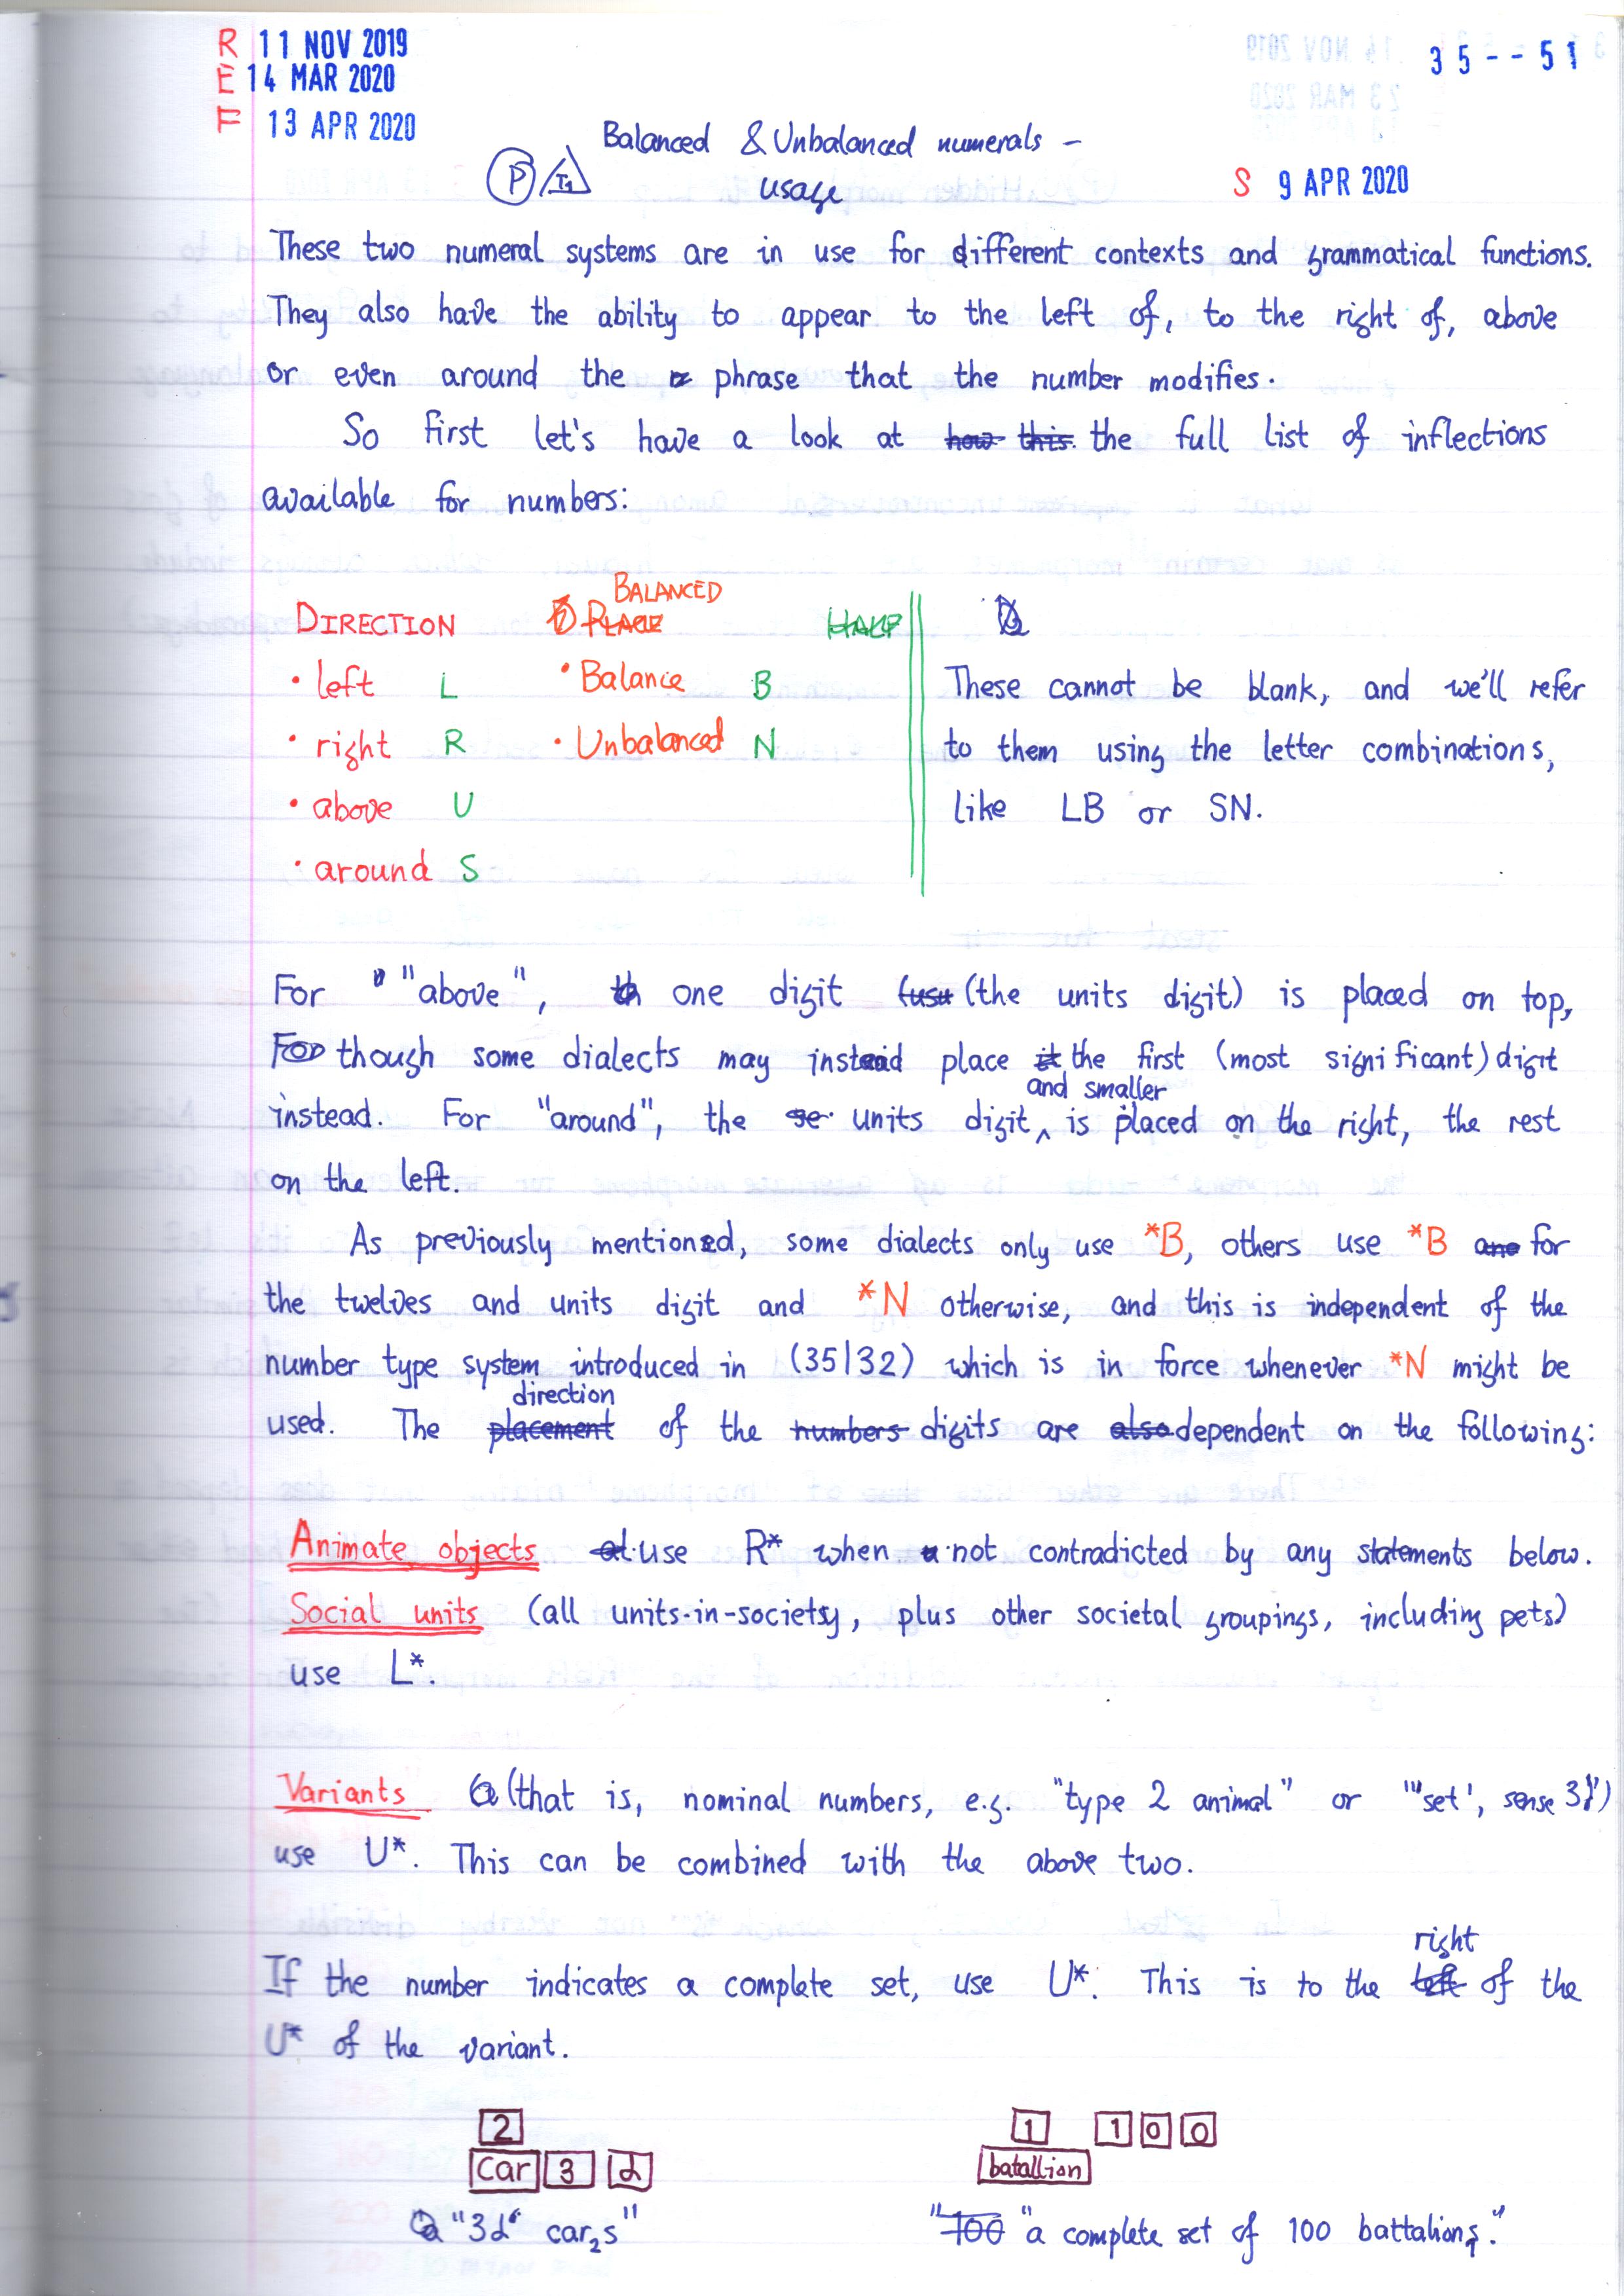 R 11 NOV 2019
E 14 MAR 2020
F 13 APR 2020
35--51
Balanced & Unbalanced numerals -
P T1 usage
S 9 APR 2020
These two numeral systems are in use for different contexts and grammatical functions.
They also have the ability to appear to the left of, to the right of, above
or even around the phrase that the number modifies.
So first let's have a look at how this the full list of inflections
available for numbers:
DIRECTION
• left L
• right R
• above U
• around S
BALANCED
PLACE
• Balance B
• Unbalanced N
HALF
These cannot be blank, and we'll refer
to them using the letter combinations,
like LB or SN.
For "above", th one digit (usu (the units digit) is placed on top,
For though some dialects may instead place it the first (most significant) digit
instead. For "around", the se units digit ^ and smaller is placed on the right, the rest
on the left.
As previously mentioned, some dialects only use *B, others use *B and for
the twelves and units digit and *N otherwise, and this is independent of the
number type system introduced in (35|32) which is in force whenever *N might be
used. The placement direction of the numbers digits are also dependent on the following:
Animate objects at use R* when not contradicted by any statements below.
Social units (all units-in-society, plus other societal groupings, including pets)
use L*.
Variants (that is, nominal numbers, e.g. "type 2 animal" or "'set', sense 3")
use U*. This can be combined with the above two.
If the number indicates a complete set, use U*. This is to the left right of the
U* of the variant.
2
Car 3 d
"3d car₂s"
1 1 0 0
batallion
"100 "a complete set of 100 battalion₁s."